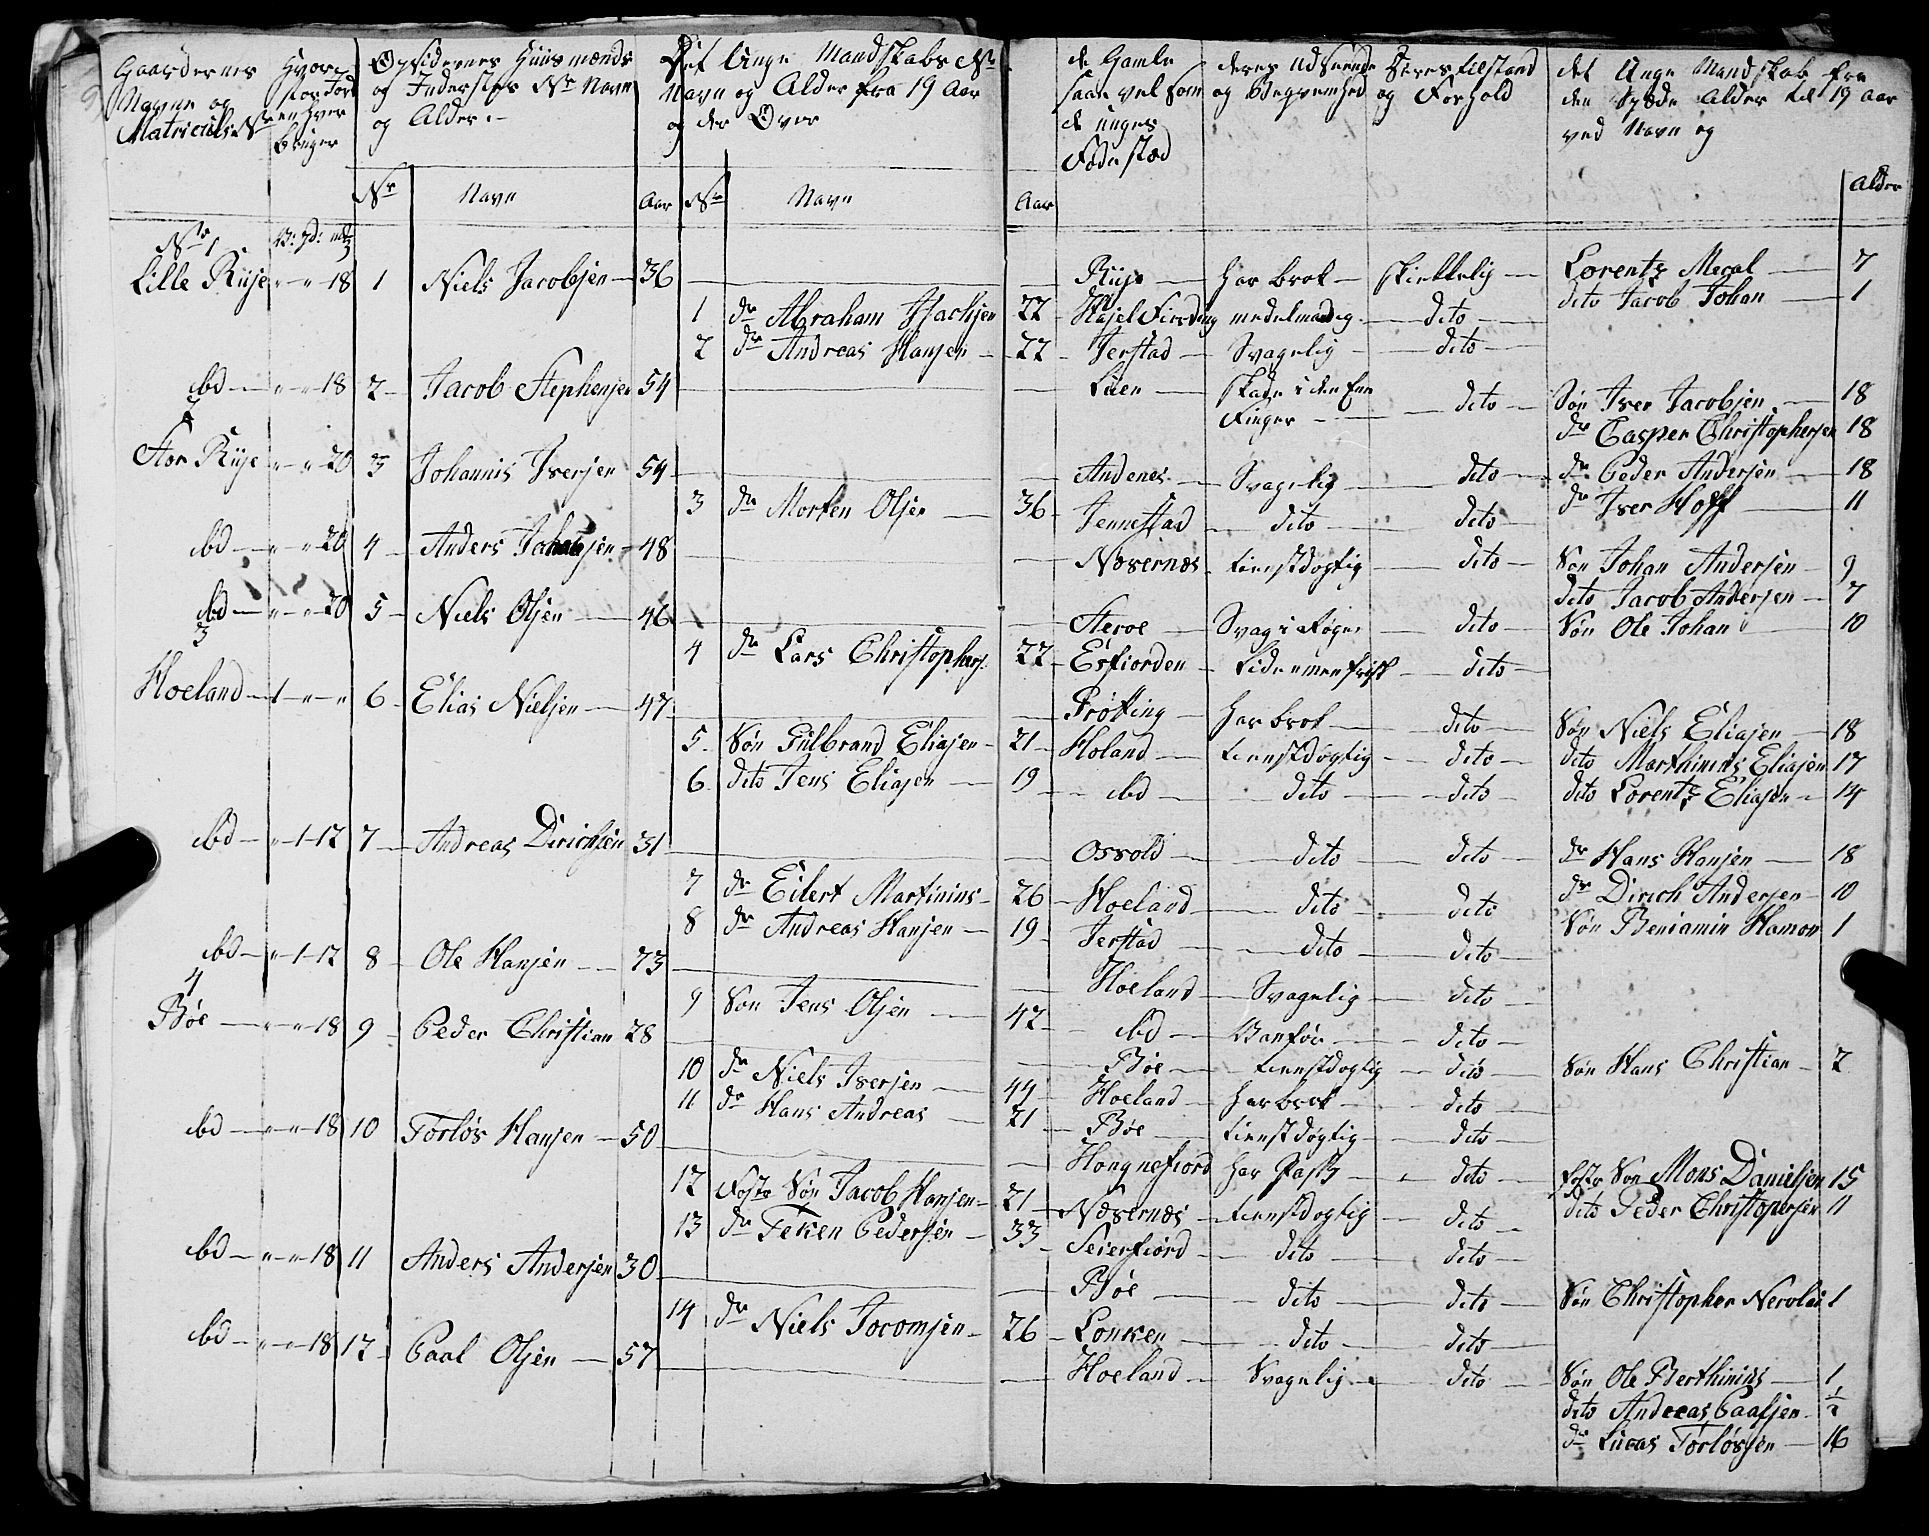 Gaardernes Navne og Matriculs Nr
Hvor stor Jord en hver bruger
Opsidernes Huusmænds og Inderster Nr Navn og Alder.
Det Unge Mandskabs Nr Navn og Alder fra 19 Aar og der Over
de Gamle saavel som de unges Fødestæd
deres Udseende og Begvemhed
Deres tilstand og Forhold
det Unge Mandskab fra den Spæde Alder til 19 aar ved Navn og
Nr Navn Aar Nr Navn Aar Alder
Nr 1
Lille Riise " " 18 1 Niels Jacobsen 36 Riise har brok skikkelig Lorentz Meral 7
1 dr Abraham Isachsen 22 medelmaadig dito dito Jacob Johan 1
2 dr Andreas Hansen 22 Jerstad Svagelig dito
2
ibd " " 18 2 Jacob Stephensen 54 Skade i den Ene Finger dito Søn Iver Jacobsen 18
dr Casper Christophersen 18
Stor Riise " " 20 3 Johannis Iversen 54 Andenes Svagelig dito dr Peder Andersen 18
3 dr Morten Olsen 36 Jennestad dito dito dr Iver Hoff 11
ibd " " 20 4 Anders 48 Næsernæs tienstdøgtig dito Søn Johan Andersen 9
dito Jacob Andersen 7
ibd " " 20 5 Niels Olsen 46 Steroe Svag i dito Søn Ole Johan 10
4 dr Lars Christophers. 22 Esfiorden Liden men frisk dito
3
Hoeland 1 " " 6 Elias Nielsen 47 Prøtting har brok dito Søn Niels Eliasen 18
5 Søn Gulbrand Eliasen 21 Holand tienstdøgtig dito dito Marthinus Eliasen 17
6 dito Jens Eliasen 19 ibd dito dito dito Lorentz Eliasen 14
ibd " 1 12 7 Andreas Dirichsen 31 Osvold dito dito dr Hans Hansen 18
7 dr Eilert Martinius 26 Hoeland dito dito dr Dirich Andersen 10
8 dr Andreas Hansen 19 Jerstad dito dito Søn Beniamin Hamon 1
ibd " 1 12 8 Ole Hansen 73 Hoeland Svagelig dito
9 Søn Jens Olsen 42 ibd Vanfør dito
4
Bøe " " 18 9 Peder Christian 28 Bøe tienstdogtig dito Søn Hans Christian 2
10 dr Niels Iversen 44 Hoeland har brok dito
11 dr Hans Andreas 21 Bøe tienstdøgtig dito
ibd " " 18 10 Torløs Hansen 50 Hongnefiord har Pass dito foster Søn Mons Danielsen 15
12 Foster Søn Jacob Hansen 21 Næsernæs tienstdogtig dito dito Peder Christopersen 11
13 dr Teken Pedersen 33 Seierfiord dito dito
ibd " " 18 11 Anders Andersen 30 Bøe dito dito Søn Christopher Nerolai 1
14 dr Niels Jocomsen 26 Lonken dito dito
ibd " " 18 12 Paal Olsen 57 Hoeland Svagelig dito Søn Ole Berthinius 1
dito Andreas Paalsen 1/2
dr Lucas Torløsen 16